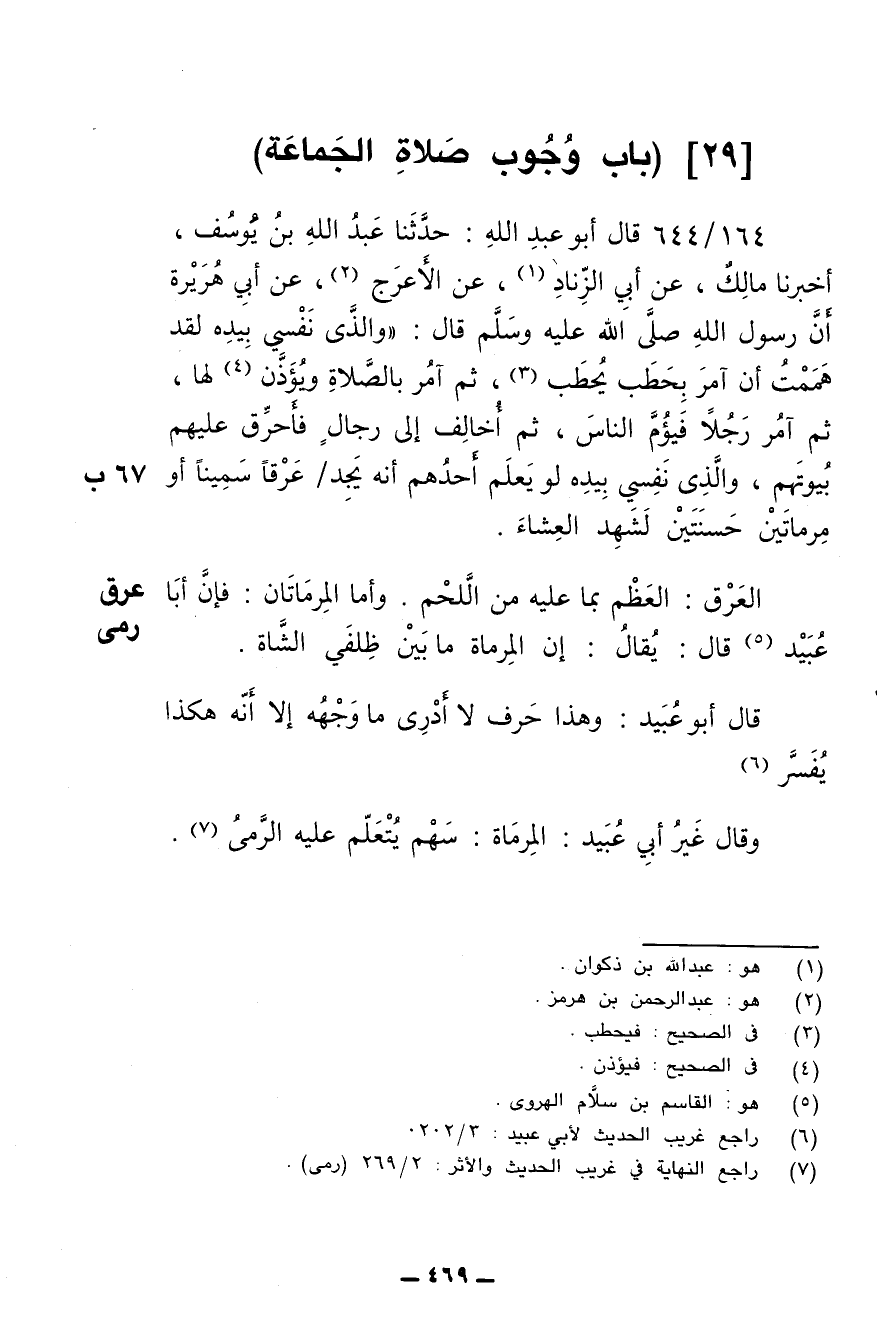 [٢٩] (باب وُجُوب صَلاةِ الجَماعَة)
٦٤٤/١٦٤ قال أبو عبدِ اللهِ : حدَّثَنا عَبدُ اللهِ بنُ يُوسُف ،
أخبرنا مالِكٌ ، عن أبي الزِّنادِ (١) ، عن الأَعرَج (٢) ، عن أبي هُرَيْرة
أَنَّ رسول اللهِ صلَّى الله عليه وسَلَّم قال : «والذَّى نَفْسي بِيدِه لقد
هَمَمْتُ أن آمرَ بِحَطَب يُحطَب (٣) ، ثم آمُر بالصَّلاةِ ويُؤَذَّن (٤) لها ،
ثم آمُر رَجُلًا فَيؤُمَّ الناسَ ، ثم أُخالِف إلى رجالٍ فأَحرِّق عليهم
بُيوتَهم ، والَّذِى نَفِسي بِيدِه لو يَعلَم أَحدُهم أنه يَجِد/ عَرْقاً سَمِيناً أو ٦٧ ب
مِرماتَيْن حَسنَتَيْن لَشَهِد العِشاءَ .
العَرْق : العَظْم بما عليه من الَّلحْم . وأما المِرمَاتَان : فإنَّ أبَا عرق
عُبَيْد (٥) قال : يُقالُ : إن المِرماة ما بَيْن ظِلفَي الشَّاة . رمى
قال أبو عُبَيد : وهذا حَرف لا أَدْرِى ما وَجْهُه إلا أَنَّه هكذا
يُفَسَّر (٦)
وقال غَيرُ أبي عُبَيد : المِرمَاة : سَهْم يُتْعَلّم عليه الرَّمىُ (٧) .
(١) هو : عبدالله بن ذكوان .
(٢) هو : عبدالرحمن بن هرمز .
(٣) فى الصحيح : فيحطب .
(٤) فى الصحيح : فيؤذن .
(٥) هو : القاسم بن سلَّام الهروى .
(٦) راجع غريب الحديث لأبي عبيد : ٢٠٢/٣.
(٧) راجع النهاية في غريب الحديث والأثر : ٢٦٩/٢ (رمى) .
ــ ٤٦٩ ــ